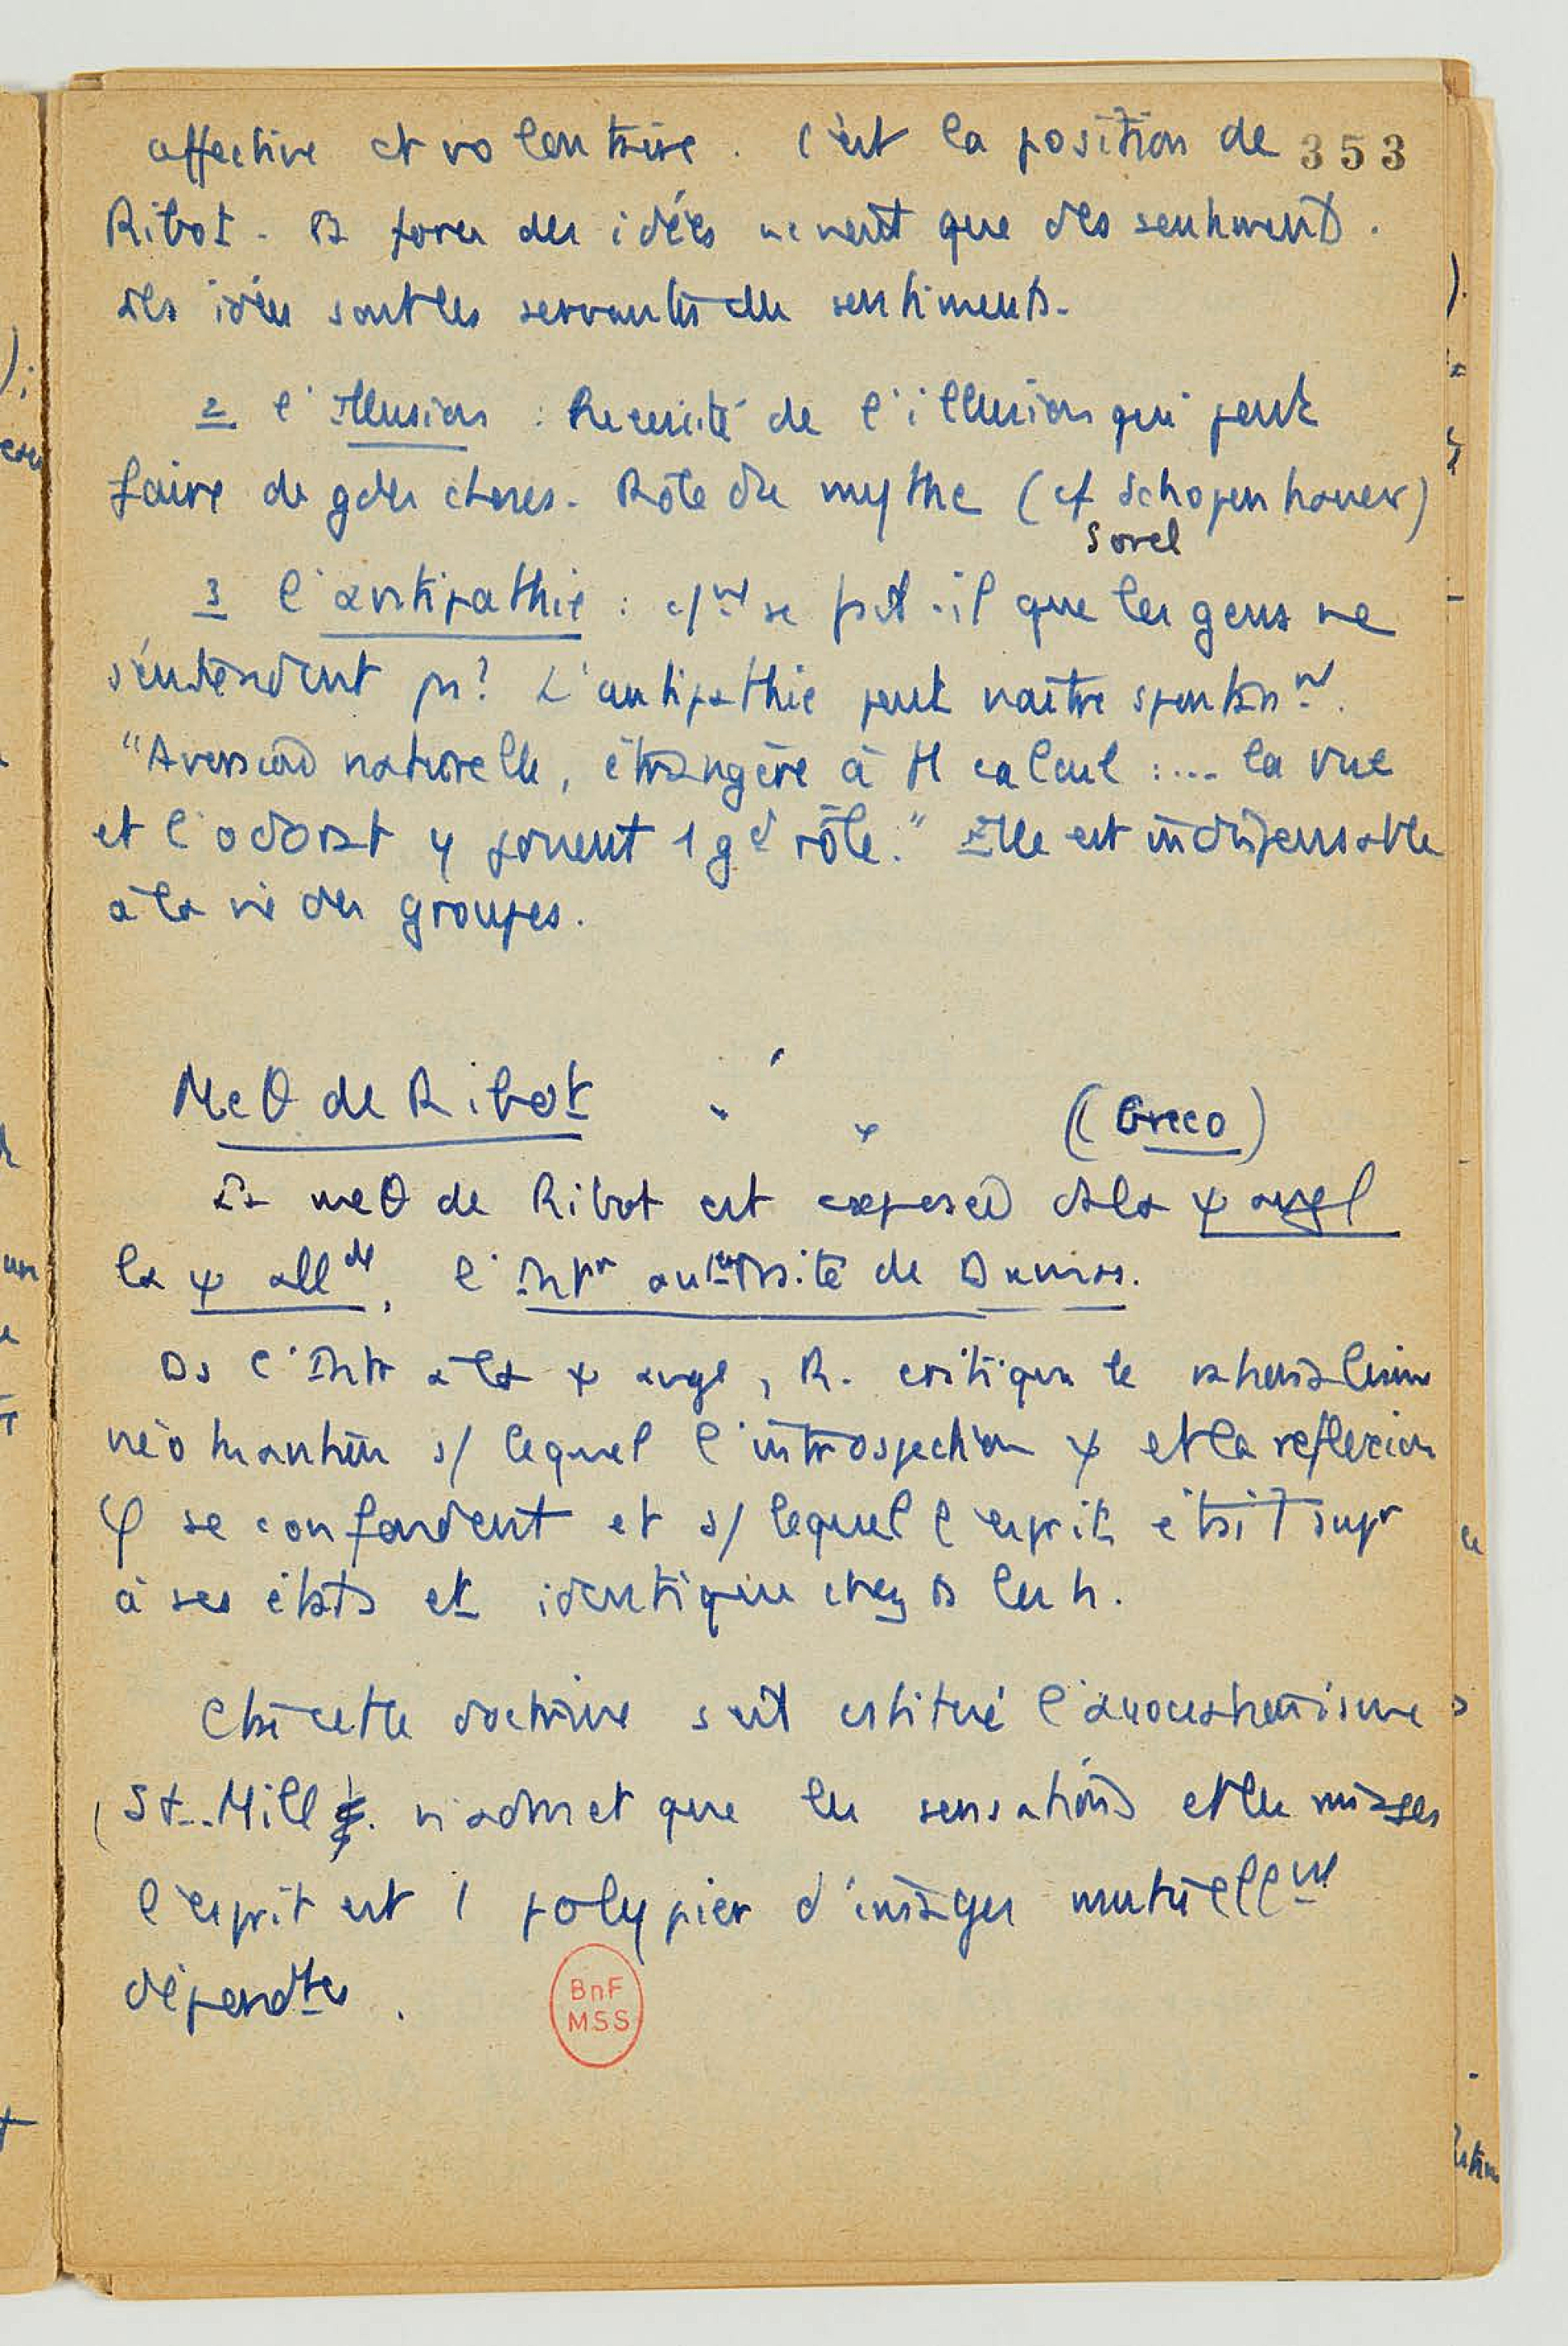 affective et volontaire. C'est la position de 353
Ribot. La force des idées ne vient que des sentiments.
Les idées sont les servantes des sentiments.
2 l'Illusion : Nécessité de l'illusion qui peut
faire de gdes choses. Rôle du mythe (cf Schopenhauer)
Sorel
3 l'antipathie : c/nt se fait-il que les gens ne
s'entendent pas? L'antipathie peut naître spontannt.
"Aversion naturelle, étrangère à tt calcul :.... la vue
et l'odorat y jouent 1 gd rôle." Elle est indispensable
à la vie des groupes.
Meθ de Ribot (Greco)
La meθ de Ribot est exposée ds la ψ angl
la ψ allde, l' de Dumas.
Ds l'Intr à la ψ angl, R. critique le
s/ lequel l'introspection ψ et la reflexion
φ se confondent et s/ lequel l'esprit était supr
à ses états et identique chez ts les h.
cette doctrine s'est l'associationisme
St. Mill n'admet que les sensations et les images
l'esprit est 1 polypier d'images mutuellnt
dépendtes.
BnF
MSS